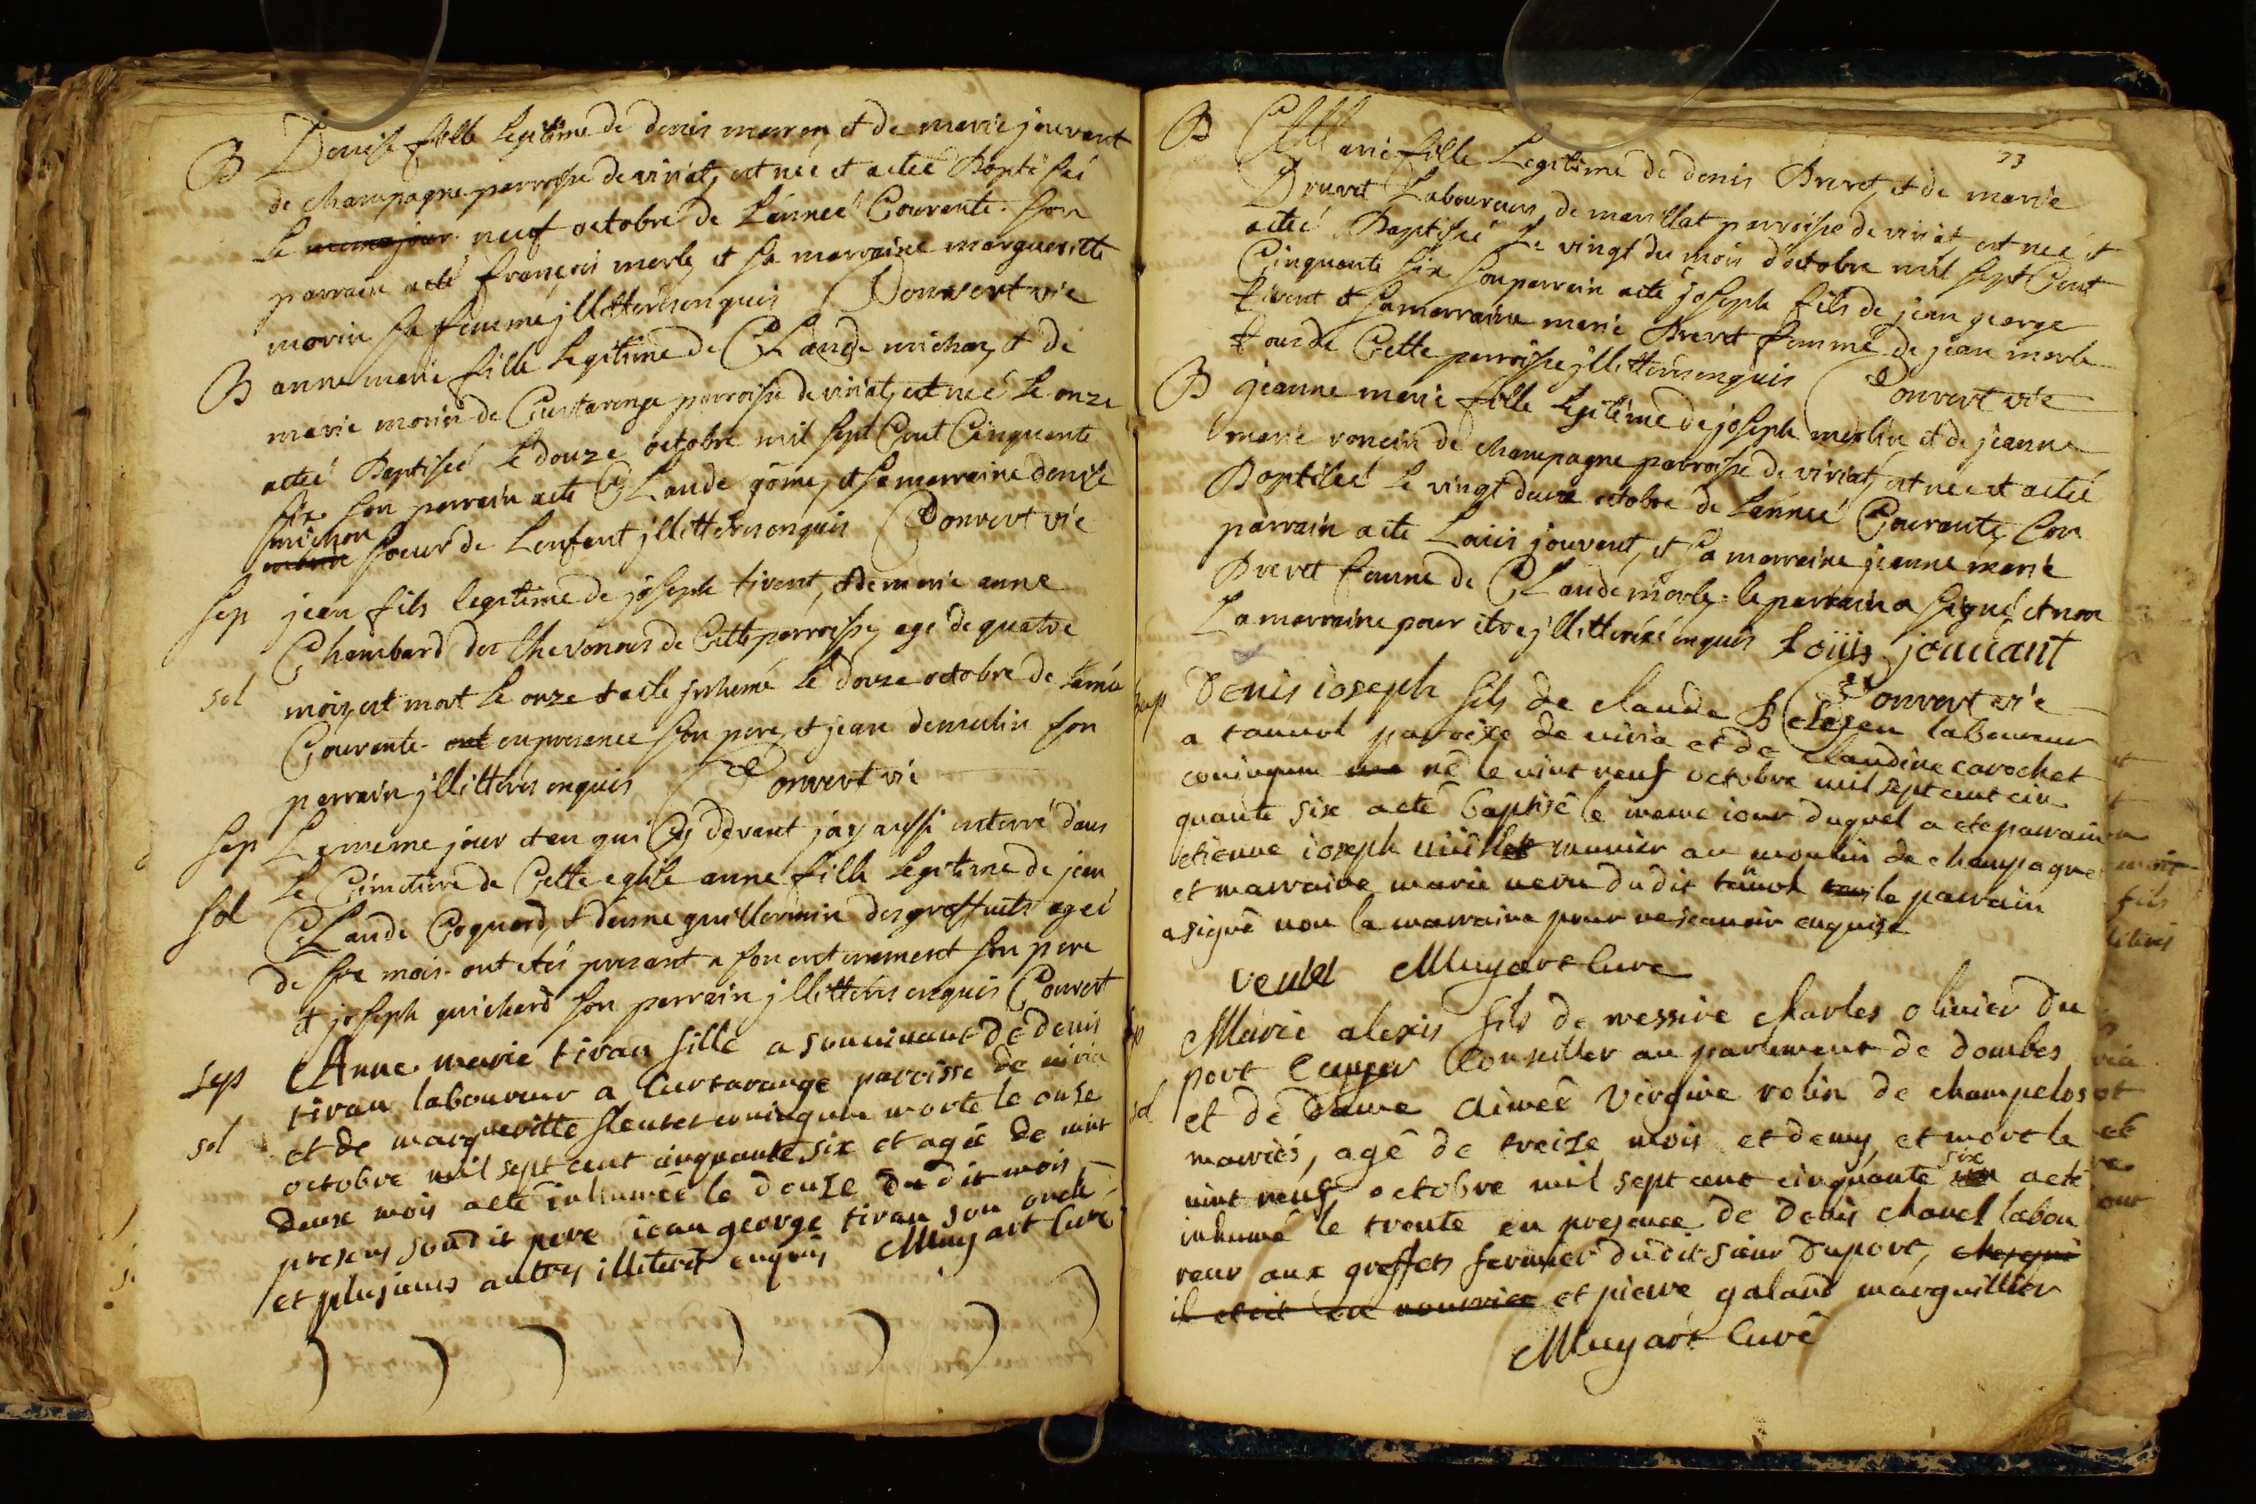 B Denise fille Legitime de denis morron et de marie jouvent
de champagne parroisse de viriat, est née et a eteé Baptisée
Le meme jour neuf octobre de L'année Courente. son
parrain a eté françois morle, et sa marraine marguerite
morin sa femme jllitterés enquis Donvert vic
B anne marie fille Legitime de Claude michon, et de
marie morin de Curtarenge parroisse de viriat, est neé Le onze
a eteé Baptiseé Le douze octobre mil sept Cent Cinquante
six son parrain a eté Claude gome, et sa marraine denise
michon
soeur de L'enfent jllitterés enquis Donvert vic
sep jean fils legitime de joseph tirent, et de marie anne
Chambard des Chevonnes de Cette parroisse, agé de quatre
sol mois, est mort Le onze et a eté jnhumé Le douze octobre de L'année
Courente. ont en presence son pere, et jean demulin son
parrain jllitterés enquis Donvert vic
sep Le meme jour et en qui Cy devant j'ay aussi enterré dans
Le Cimetiere de Cette eglise anne fille Legitime de jean
sol Claude Coquard, et d'anne guillermin des greffets ageé
de six mois. ont etés present a son enterrement son pere
et joseph guichard son parrain jllitterés enquis Convert
sep Anne marie tiran fille a souvivant de denis
tiran laboureur a Curtarange paroisse de viria
sol et de margueritte fleutet coniogum morte le onse
octobre mil sept cent cinquante six et agée de vint
deux mois a eté inhumée le douse du dit mois
presens soudit pere jean george tiran son oncle
et plusieurs autres illiterés enquis Muyart Curé
73
B Marie fille Legitime de denis Brevet, et de marie
Druvet Laboureurs, de marillat parroisse de viriat est neé et
a eteé Baptiseé Le vingt du mois d'octobre mil sept Cent
Cinquante six son parrain a eté joseph fils de jean george
tirent et sa marraine marie Brevet femme de jean morle
tous de Cette parroisse jllitterés enquis Donvert vic
B jeanne marie fille Legitime de joseph merlin et de jeanne
marie roncin de champagne parroisse de viriat, est née et a eteé
Baptiseé Le vingt deux octobre de L'anneé Courante, son
parrain a eté Loüis jouvent, et sa marraine jeanne marie
Brevet femme de Claude morle. le parrain a signé, et non
La marraine pour etre jllitterée enquis Loüis jouuant
Donvert vic
bap Denis ioseph fils de claude laboureur
a tannol paroisse de viria et de Claudine carochet
coniogum né le vint neuf octobre mil sept cent cin
quante six a eté baptisé le meme iour duquel a ete parrain
etienne ioseph meunier au moulin de champagne
et marraine marie neuve du dit tannol le parrain
a signé non la marraine pour ne scavoir enquise
veulet Muyart Curé
sep Marie alexis fils de messire charles olivier du
port Conseiller au parlement de dombes
sol et de Dame aimeé virginie rolin de champelos
mariés, agé de treize mois et demy, et mort le
vint neuf octobre mil sept cent cinquante six a eté
inhumé le trente en presence de denis chanel labou
reur aux greffets fermier dudit sieur duport, chez qui
il etoit en nourrice et pierre galand marguillier
Muyart Curé